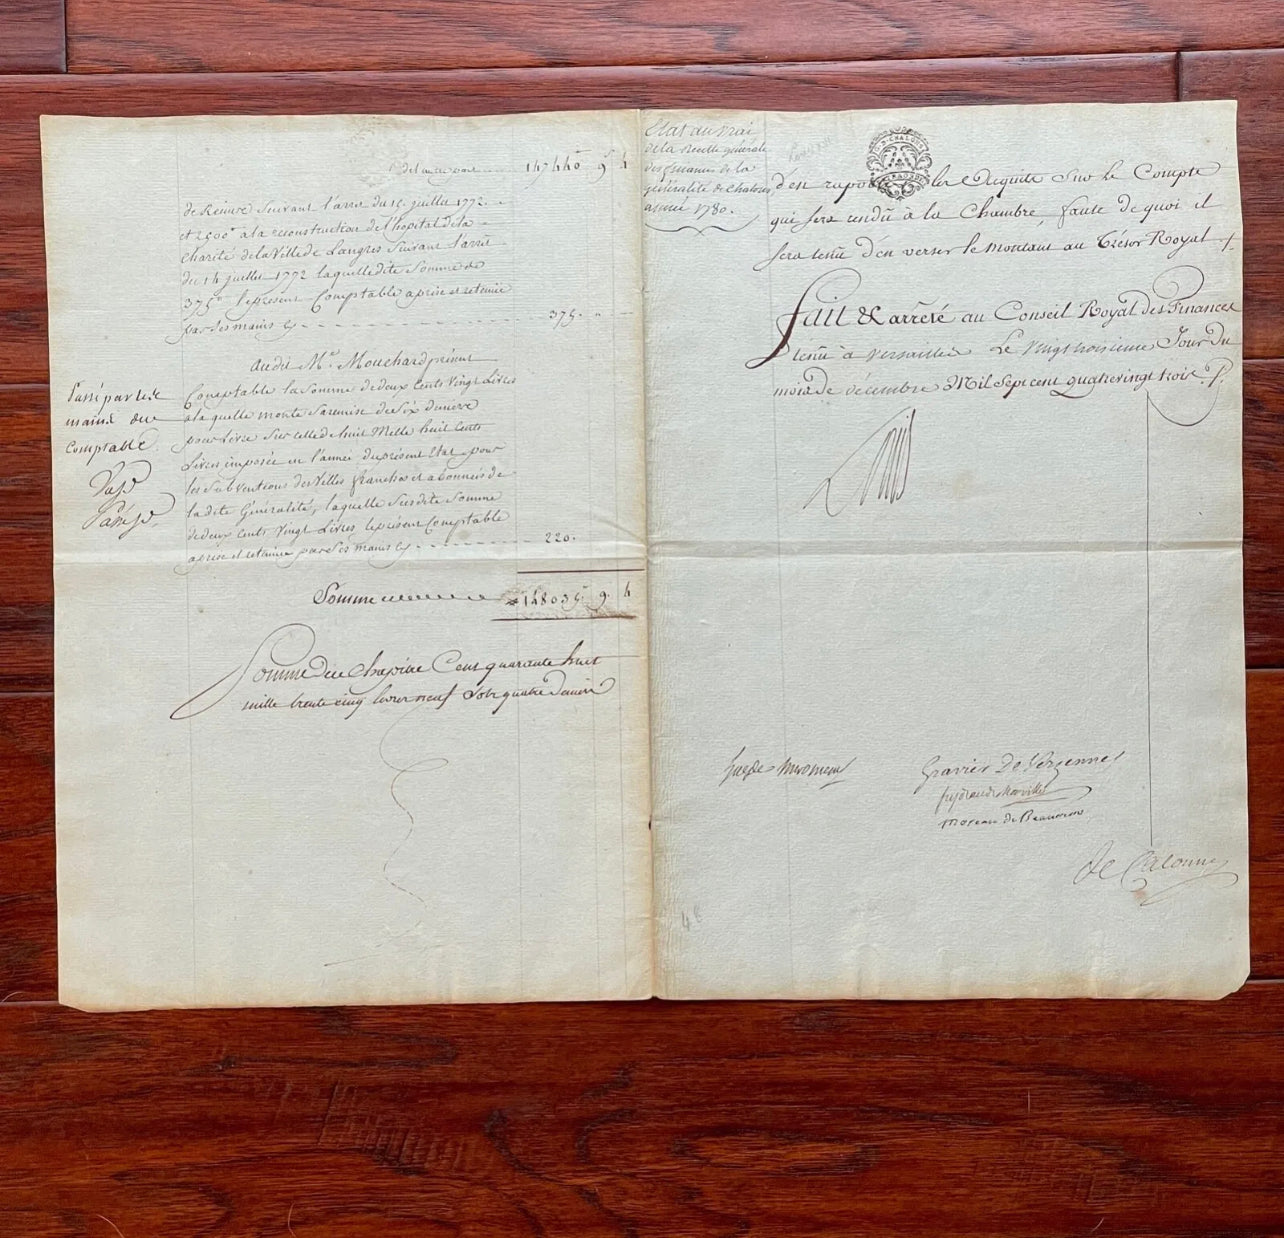 147440 9 4
de Reims Suivant l'arret du 15. juillet 1772.
et 2500# a la reconstruction de l'hopital de la
Charité de la Ville de Langres Suivant l'arret
du 14 juillet 1772 laquelle dite Somme de
375# le present Comptable a prise et retenüe
par Ses mains cy 375.
Au dit Me. Mouchard présent
Comptable la Somme de deux Cents Vingt Livres
a la quelle monte Sa remise de Six deniers
pour Livre Sur celle de huit Mille huit Cents
Livres imposée en l'année du présent Etat pour
les Subventions des Villes franches et abonnées de
la dite Généralité, laquelle Susdite Somme
de deux Cents Vingt Livres le présent Comptable
a prise et retenüe par Ses mains cy 220.
Passé par les
mains du
Comptable.
Somme 148035 9. 4
Somme du Chapitre Cent quarante huit
mille trente cinq livres neuf Sols quatre deniers
Etat au vrai
de la recette générale
des finances de la
généralité de Chalons
année 1780.
d'en raporter les Acquits Sur le Compte
qui Sera rendû à la Chambre, faute de quoi il
Sera tenû d'en verser le montant au Trésor Royal
Fait & arrêté au Conseil Royal des Finances
tenû à Versailles Le Vingt troisieme Jour du
mois de décembre Mil Sept cent quatre vingt trois.
Louis
Hue de Miromenil
Gravier De Vergennes
Feydeau de Marville
Moreau de Beaumont
De Calonne